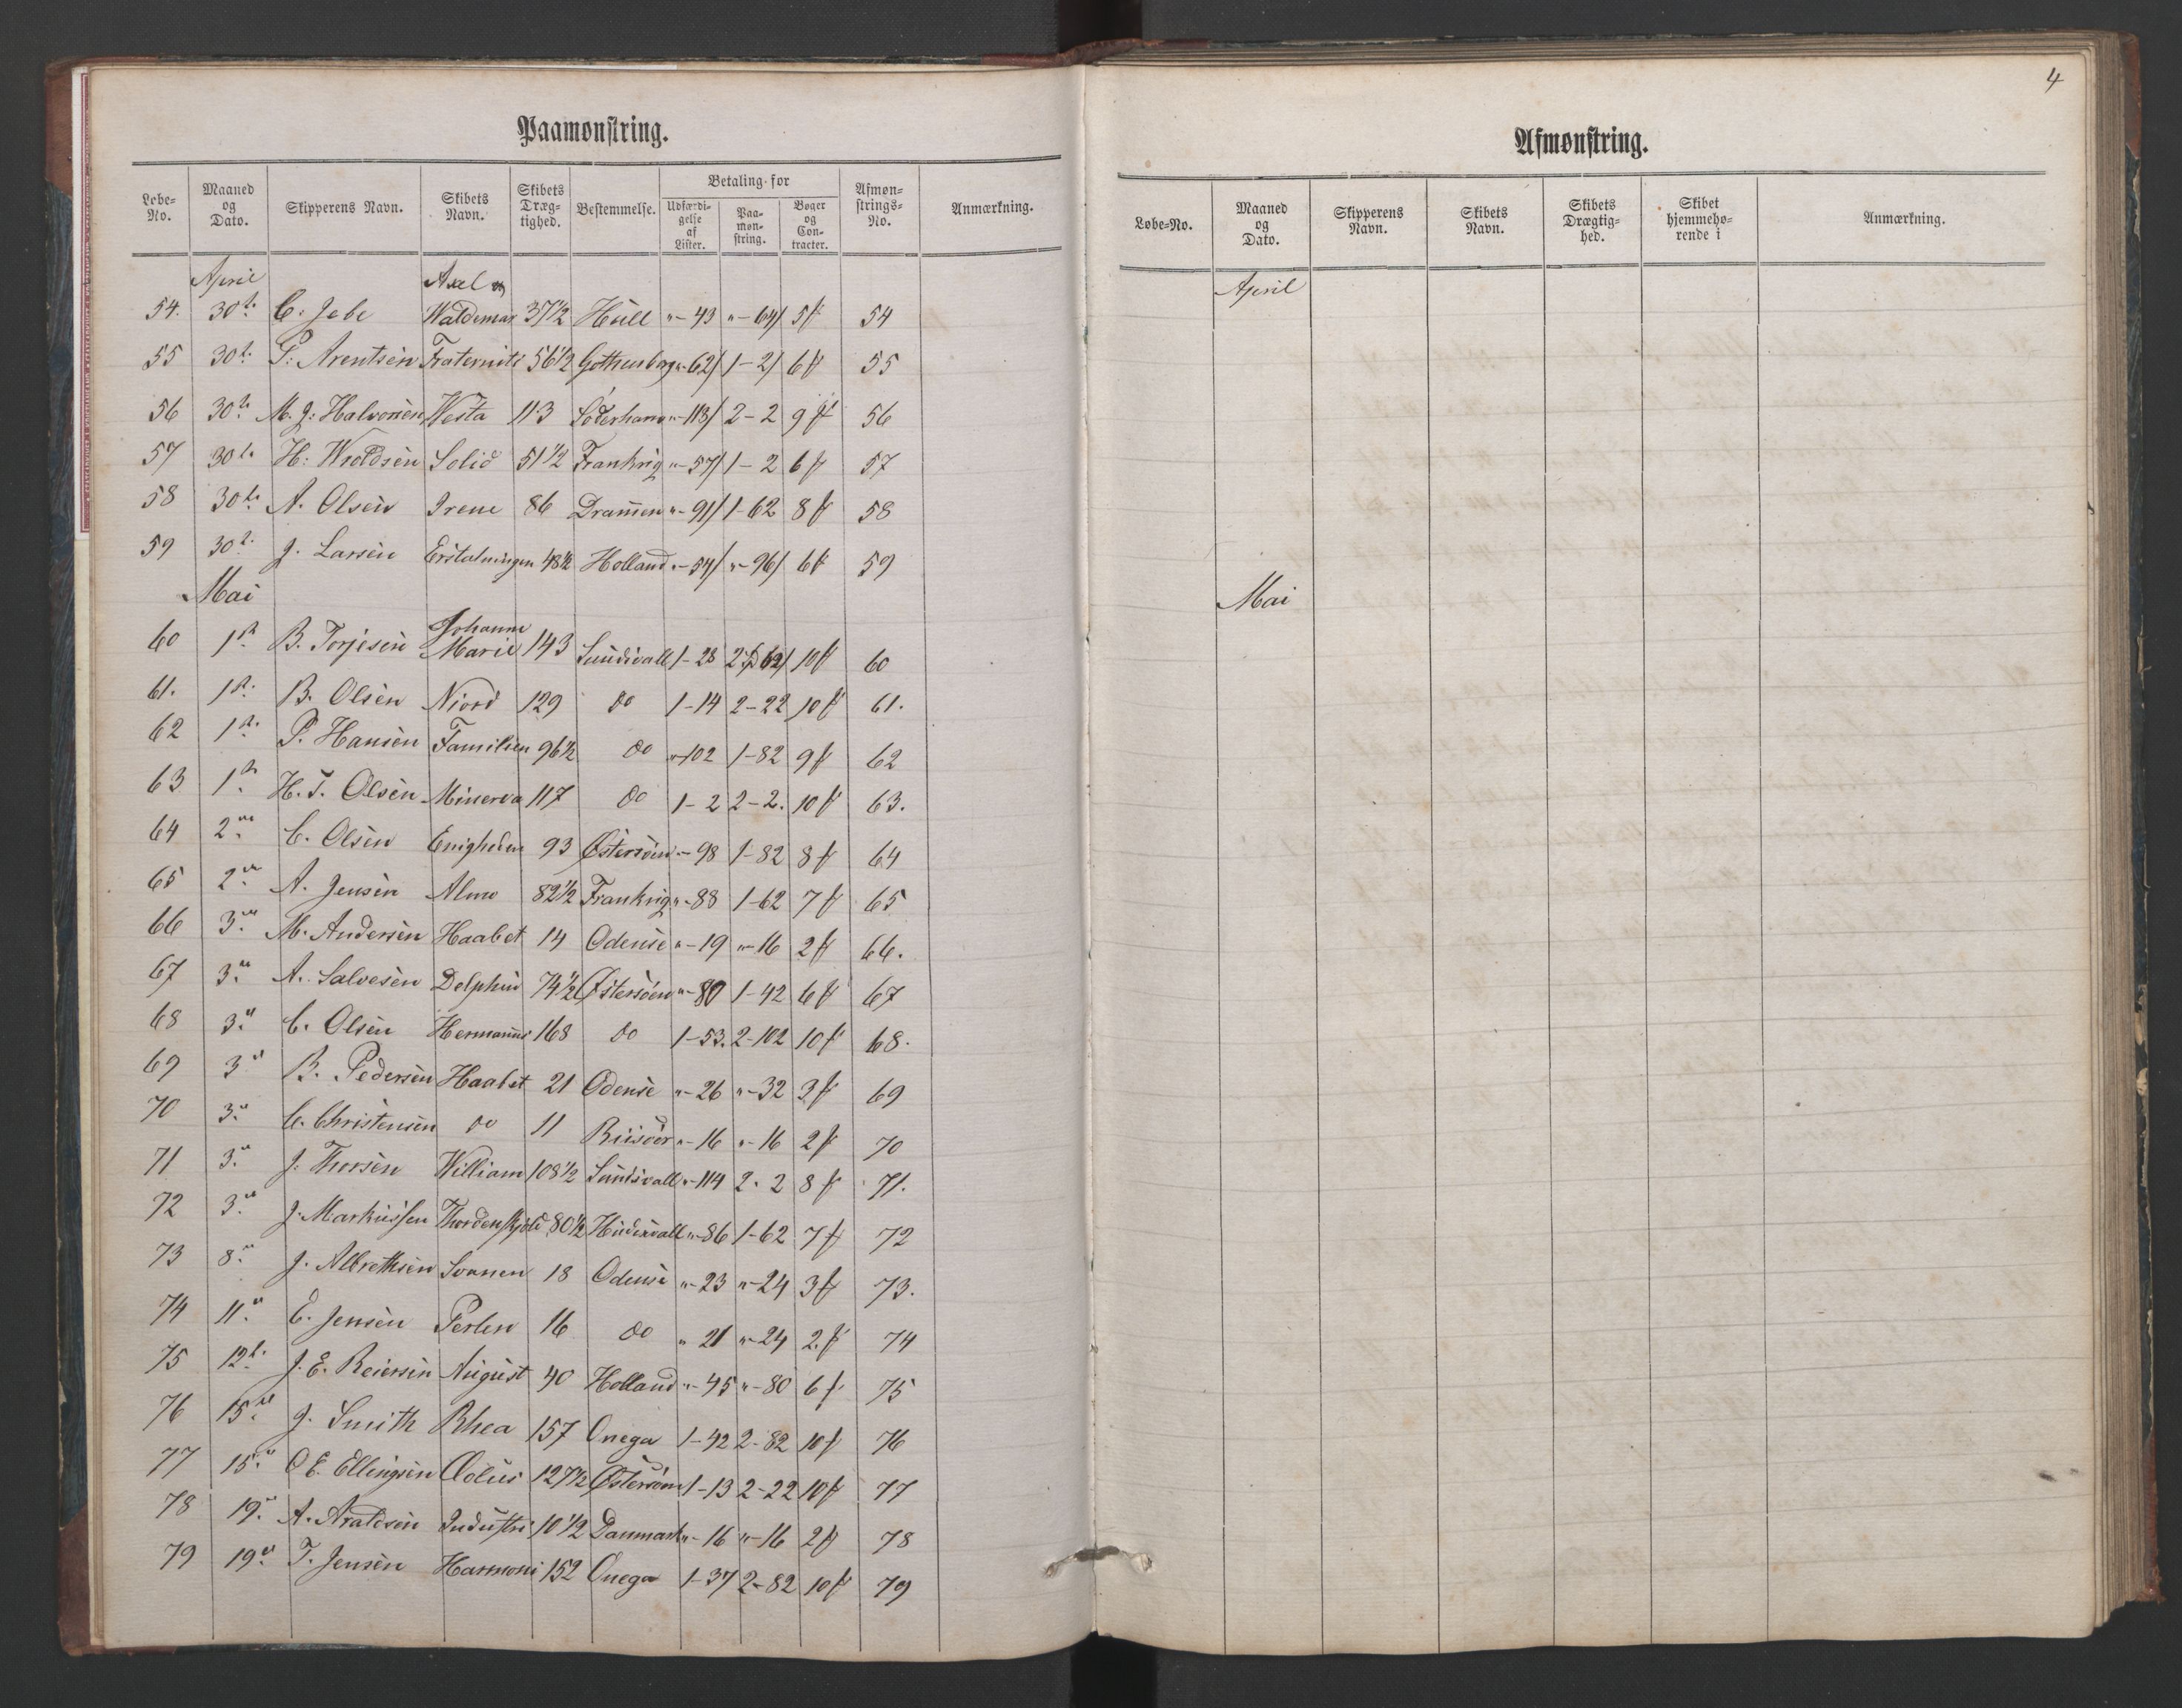 Paamønstring.
Løbe-No. Maaned og Dato. Skipperens Navn. Skibets Navn. Skibets Drægtighed. Bestemmelse. Betaling for Udfærdigelse af Lister. Paamønstring. Bøger og Contracter. Afmønstrings-No. Anmærkning.
April Axel
54. 30t. C. Jebe Waldemar 37 1/2 Hull "-43 "-64 5 f 54
55 30t. P. Arentsen Fraternité 56 1/2 Gothenborg "-62 1-2 6 f 55
56 30t. M. J. Halvorsen Vesta 113 Söderhamn "-113 2-2 9 f 56
57 30t. H. Wroldsen Solid 51 1/2 Frankrig "-57 1-2 6 f 57
58 30t. A. Olsen Irene 86 Dram̄en "-91 1-62 8 f 58
59 30t. J. Larsen Erstatningen 48 1/2 Holland "-54 "-96 6 f 59
Mai
Johanne
60 1st. B. Torjesen Marie 143 Sundsvall 1-28 2-62 10 f 60
61. 1st. B. Olsen Niord 129 do 1-14 2-22 10 f 61.
62 1st. P. Hansen Familien 96 1/2 do "-102 1-82 9 f 62
63 1st. H. T. Olsen Minerva 117 do 1-2 2-2. 10 f 63.
64 2den C. Olsen Enigheden 93 Østersöen "-98 1-82 8 f 64
65 2den A. Jensen Alma 82 1/2 Frankrig "-88 1-62 7 f 65
66 3die M. Andersen Haabet 14 Odense "-19 "-16 2 f 66.
67 3die A. Salvesen Delphin 74 1/2 Østersöen "-80 1-42 6 f 67
68 3die C. Olsen Hermanus 168 do 1-53. 2-102 10 f 68.
69 3die B. Pedersen Haabet 21 Odense "-26 "-32 3 f 69
70 3die C. Christensen do 11 Riisöer "-16 "-16 2 f 70
71 3die J. Thorsen William 108 1/2 Sundsvall "-114 2-2 8 f 71.
72 3die J. Markussen Thordenskjold 80 1/2 Hudiksvall "-86 1-62 7 f 72
73 8de J. Albrethsen Svanen 18 Odense "-23 "-24 3 f 73.
74 11te E. Jensen Perlen 16 do " 21 "-24 2 f 74
75 12t. J. E. Reiersen August 40 Holland "-45 "-80 6 f 75
76 15de J. Smith Rhea 157 Onega 1-42 2-82 10 f 76
77 15de O E. Ellingsen Æolus 127 1/2 Østersöen 1-13 2-22 10 f 77
78 19de A. Araldsen Industri 10 1/2 Danmark "-16 "-16 2 f 78
79 19de T. Jensen Harmoni 152 Onega 1-37 2-82 10 f 79
4
Afmønstring.
Løbe-No. Maaned og Dato. Skipperens Navn. Skibets Navn. Skibets Drægtighed. Skibet hjemmehørende i Anmærkning.
April
Mai